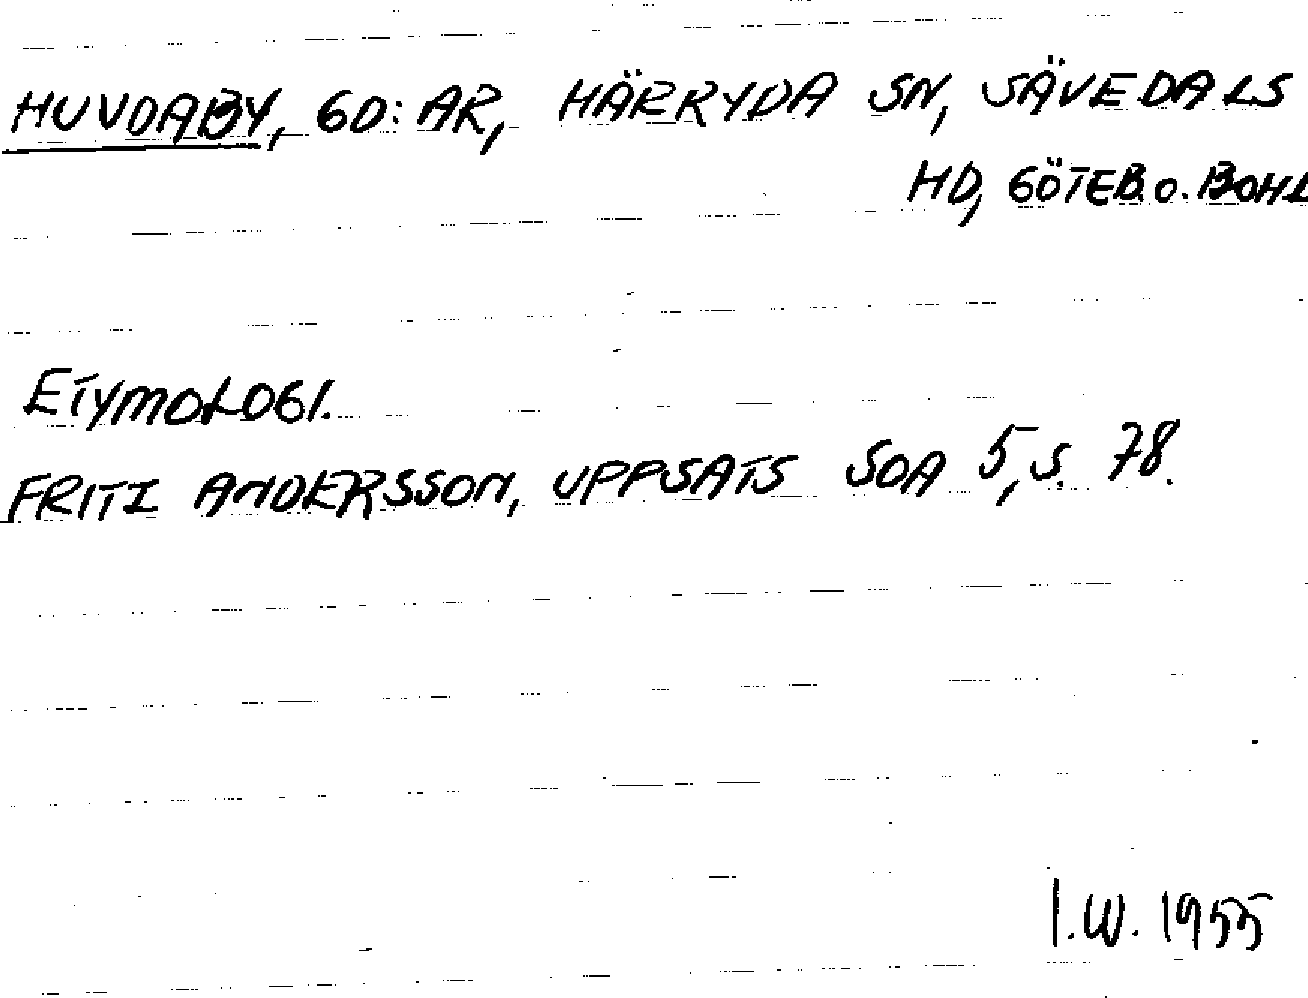 HUVDABY, GD:AR, HÄRRYDA SN, SÄVEDALS
HD, GÖTEB. O. BOHL
ETYMOLOGI.
FRITZ ANDERSSON, UPPSATS SOA 5, S. 78.
I.W. 1955